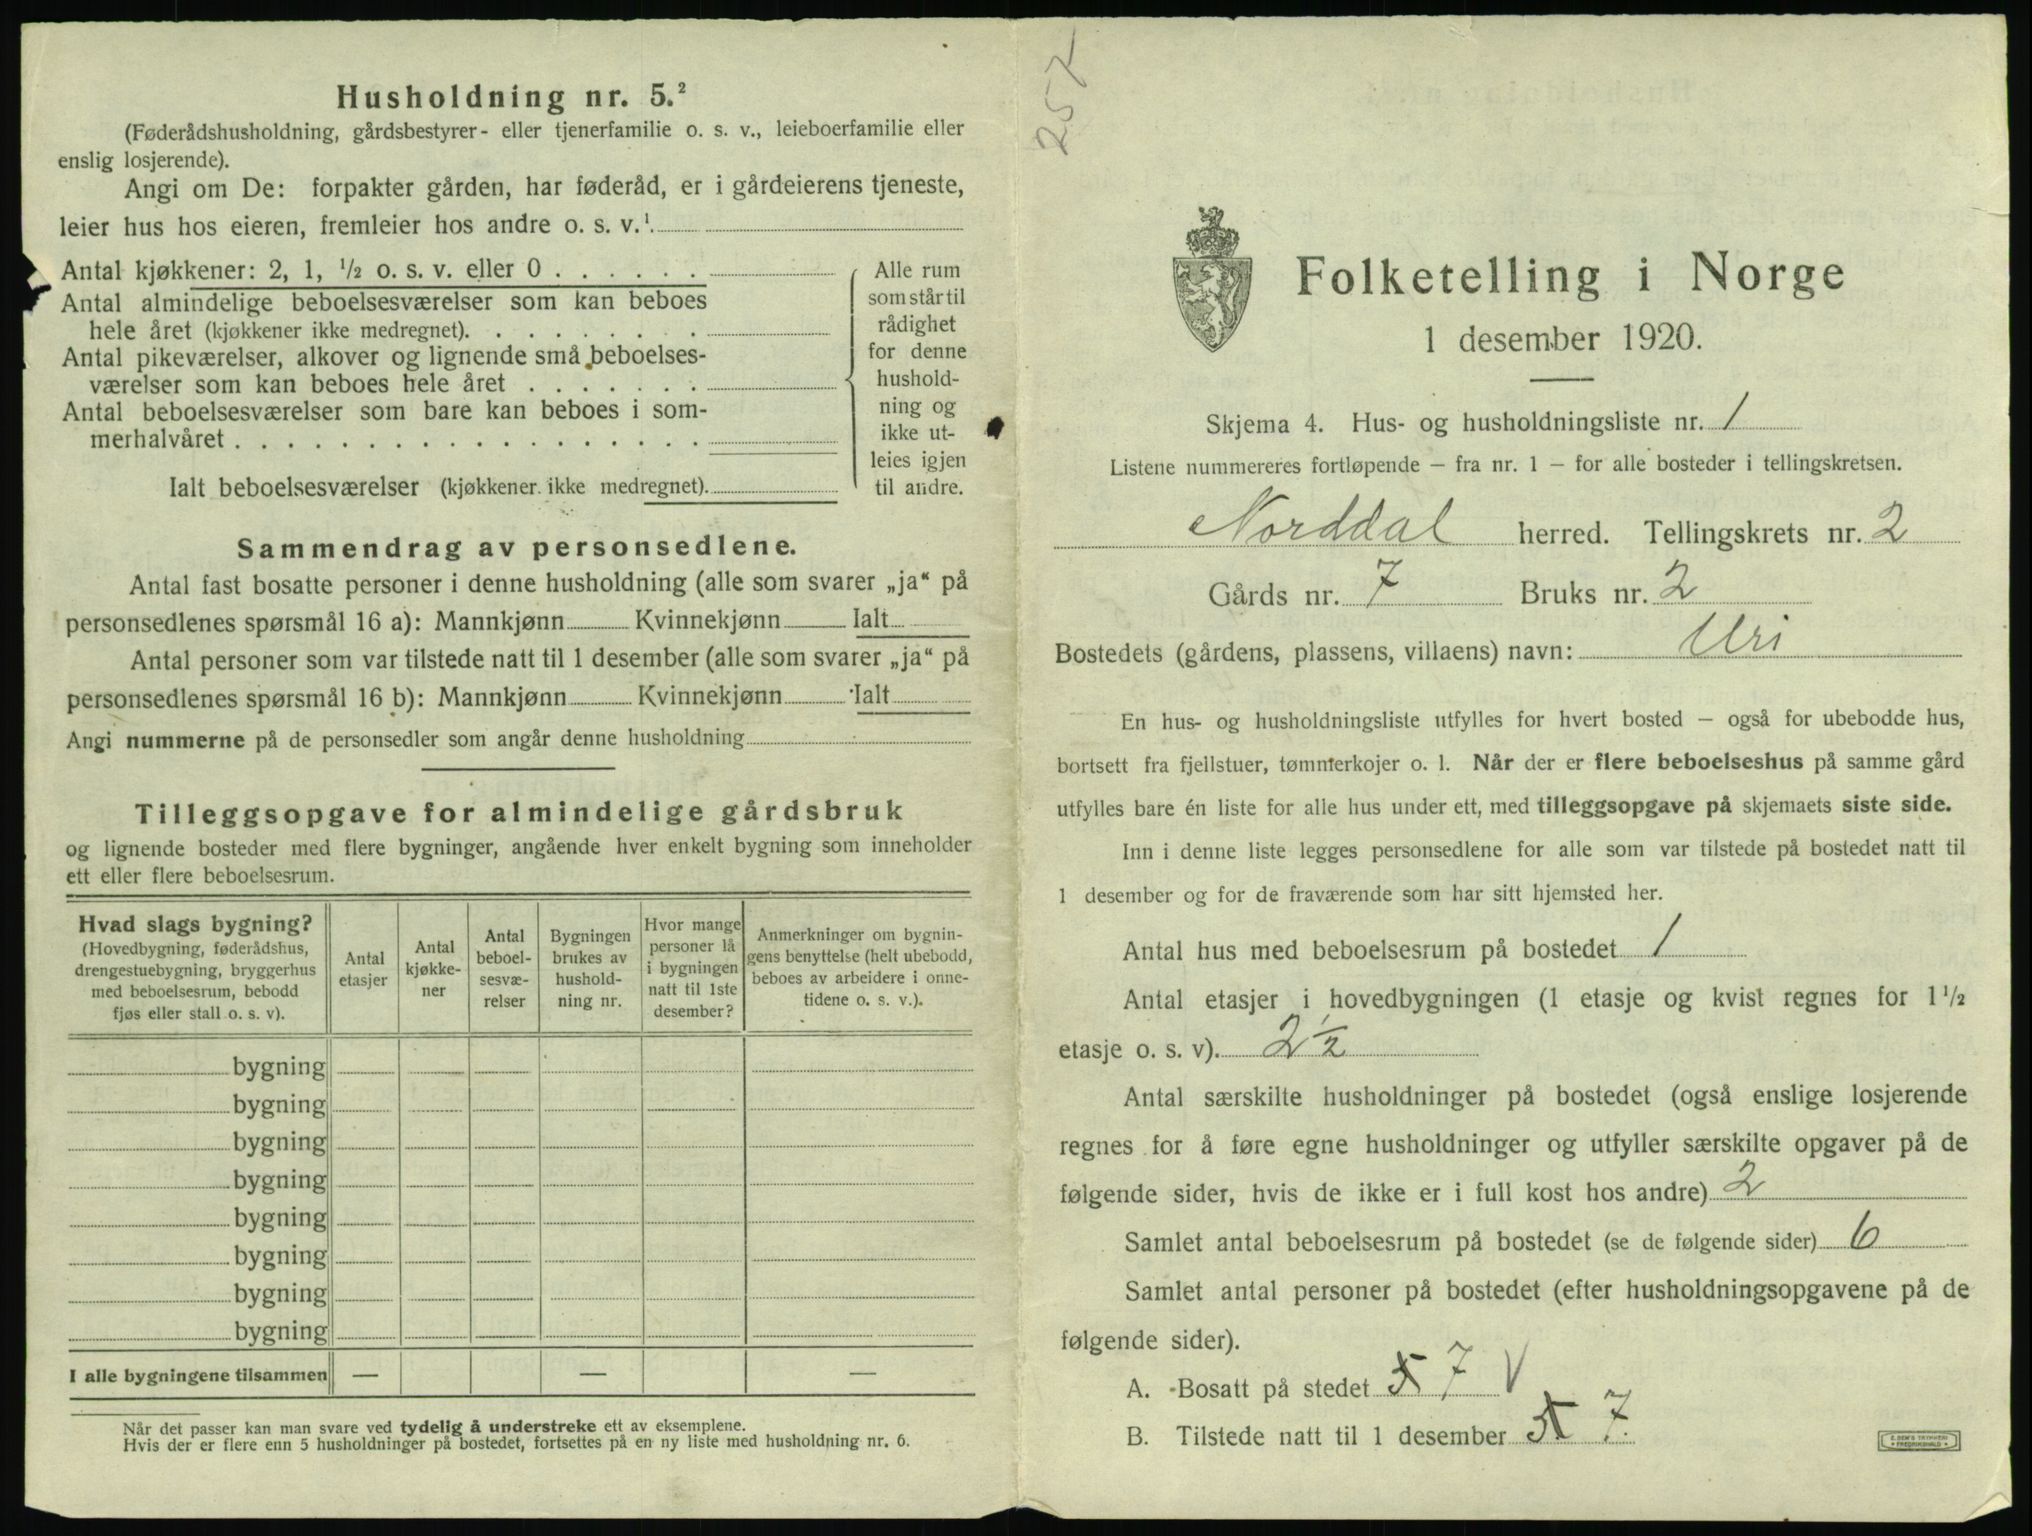 Husholdning nr. 5.²
(Føderådshusholdning, gårdsbestyrer- eller tjenerfamilie o. s. v., leieboerfamilie eller
enslig losjerende).
Angi om De: forpakter gården, har føderåd, er i gårdeierens tjeneste,
leier hus hos eieren, fremleier hos andre o. s. v.¹
Antal kjøkkener: 2, 1, ½ o. s. v. eller 0
Antal almindelige beboelsesværelser som kan beboes
hele året (kjøkkener ikke medregnet).
Antal pikeværelser, alkover og lignende små beboelses-
værelser som kan beboes hele året
Antal beboelsesværelser som bare kan beboes i som-
merhalvåret
Ialt beboelsesværelser (kjøkkener ikke medregnet).
Alle rum
som står til
rådighet
for denne
hushold-
ning og
ikke ut-
leies igjen
til andre.
Sammendrag av personsedlene.
Antal fast bosatte personer i denne husholdning (alle som svarer „ja“ på
personsedlenes spørsmål 16 a): Mannkjønn Kvinnekjønn Ialt
Antal personer som var tilstede natt til 1 desember (alle som svarer „ja“ på
personsedlenes spørsmål 16 b): Mannkjønn Kvinnekjønn Ialt
Angi nummerne på de personsedler som angår denne husholdning
Tilleggsopgave for almindelige gårdsbruk
og lignende bosteder med flere bygninger, angående hver enkelt bygning som inneholder
ett eller flere beboelsesrum.
Hvad slags bygning?
(Hovedbygning, føderådshus,
drengestuebygning, bryggerhus
med beboelsesrum, bebodd
fjøs eller stall o. s. v).
Antal
etasjer
Antal
kjøkke-
ner
Antal
beboel-
sesvæ-
relser
Bygningen
brukes av
hushold-
ning nr.
Hvor mange
personer lå
i bygningen
natt til 1ste
desember?
Anmerkninger om bygnin-
gens benyttelse (helt ubebodd,
beboes av arbeidere i onne-
tidene o. s. v.).
bygning
bygning
bygning
bygning
bygning
bygning
bygning
bygning
I alle bygningene tilsammen — — —
Når det passer kan man svare ved tydelig å understreke ett av eksemplene.
Hvis der er flere enn 5 husholdninger på bostedet, fortsettes på en ny liste med husholdning nr. 6.
257
Folketelling i Norge
1 desember 1920.
Skjema 4. Hus- og husholdningsliste nr. 1
Listene nummereres fortløpende — fra nr. 1 — for alle bosteder i tellingskretsen.
Norddal herred. Tellingskrets nr. 2
Gårds nr. 7 Bruks nr. 2
Bostedets (gårdens, plassens, villaens) navn: Uri
En hus- og husholdningsliste utfylles for hvert bosted — også for ubebodde hus,
bortsett fra fjellstuer, tømmerkojer o. l. Når der er flere beboelseshus på samme gård
utfylles bare én liste for alle hus under ett, med tilleggsopgave på skjemaets siste side.
Inn i denne liste legges personsedlene for alle som var tilstede på bostedet natt til
1 desember og for de fraværende som har sitt hjemsted her.
Antal hus med beboelsesrum på bostedet 1
Antal etasjer i hovedbygningen (1 etasje og kvist regnes for 1½
etasje o. s. v). 2½
Antal særskilte husholdninger på bostedet (også enslige losjerende
regnes for å føre egne husholdninger og utfyller særskilte opgaver på de
følgende sider, hvis de ikke er i full kost hos andre) 2
Samlet antal beboelsesrum på bostedet (se de følgende sider) 6
Samlet antal personer på bostedet (efter husholdningsopgavene på de
følgende sider).
A. Bosatt på stedet 7 V
B. Tilstede natt til 1 desember 7.
E. SEM'S TRYKKERI
FREDRIKSHALD